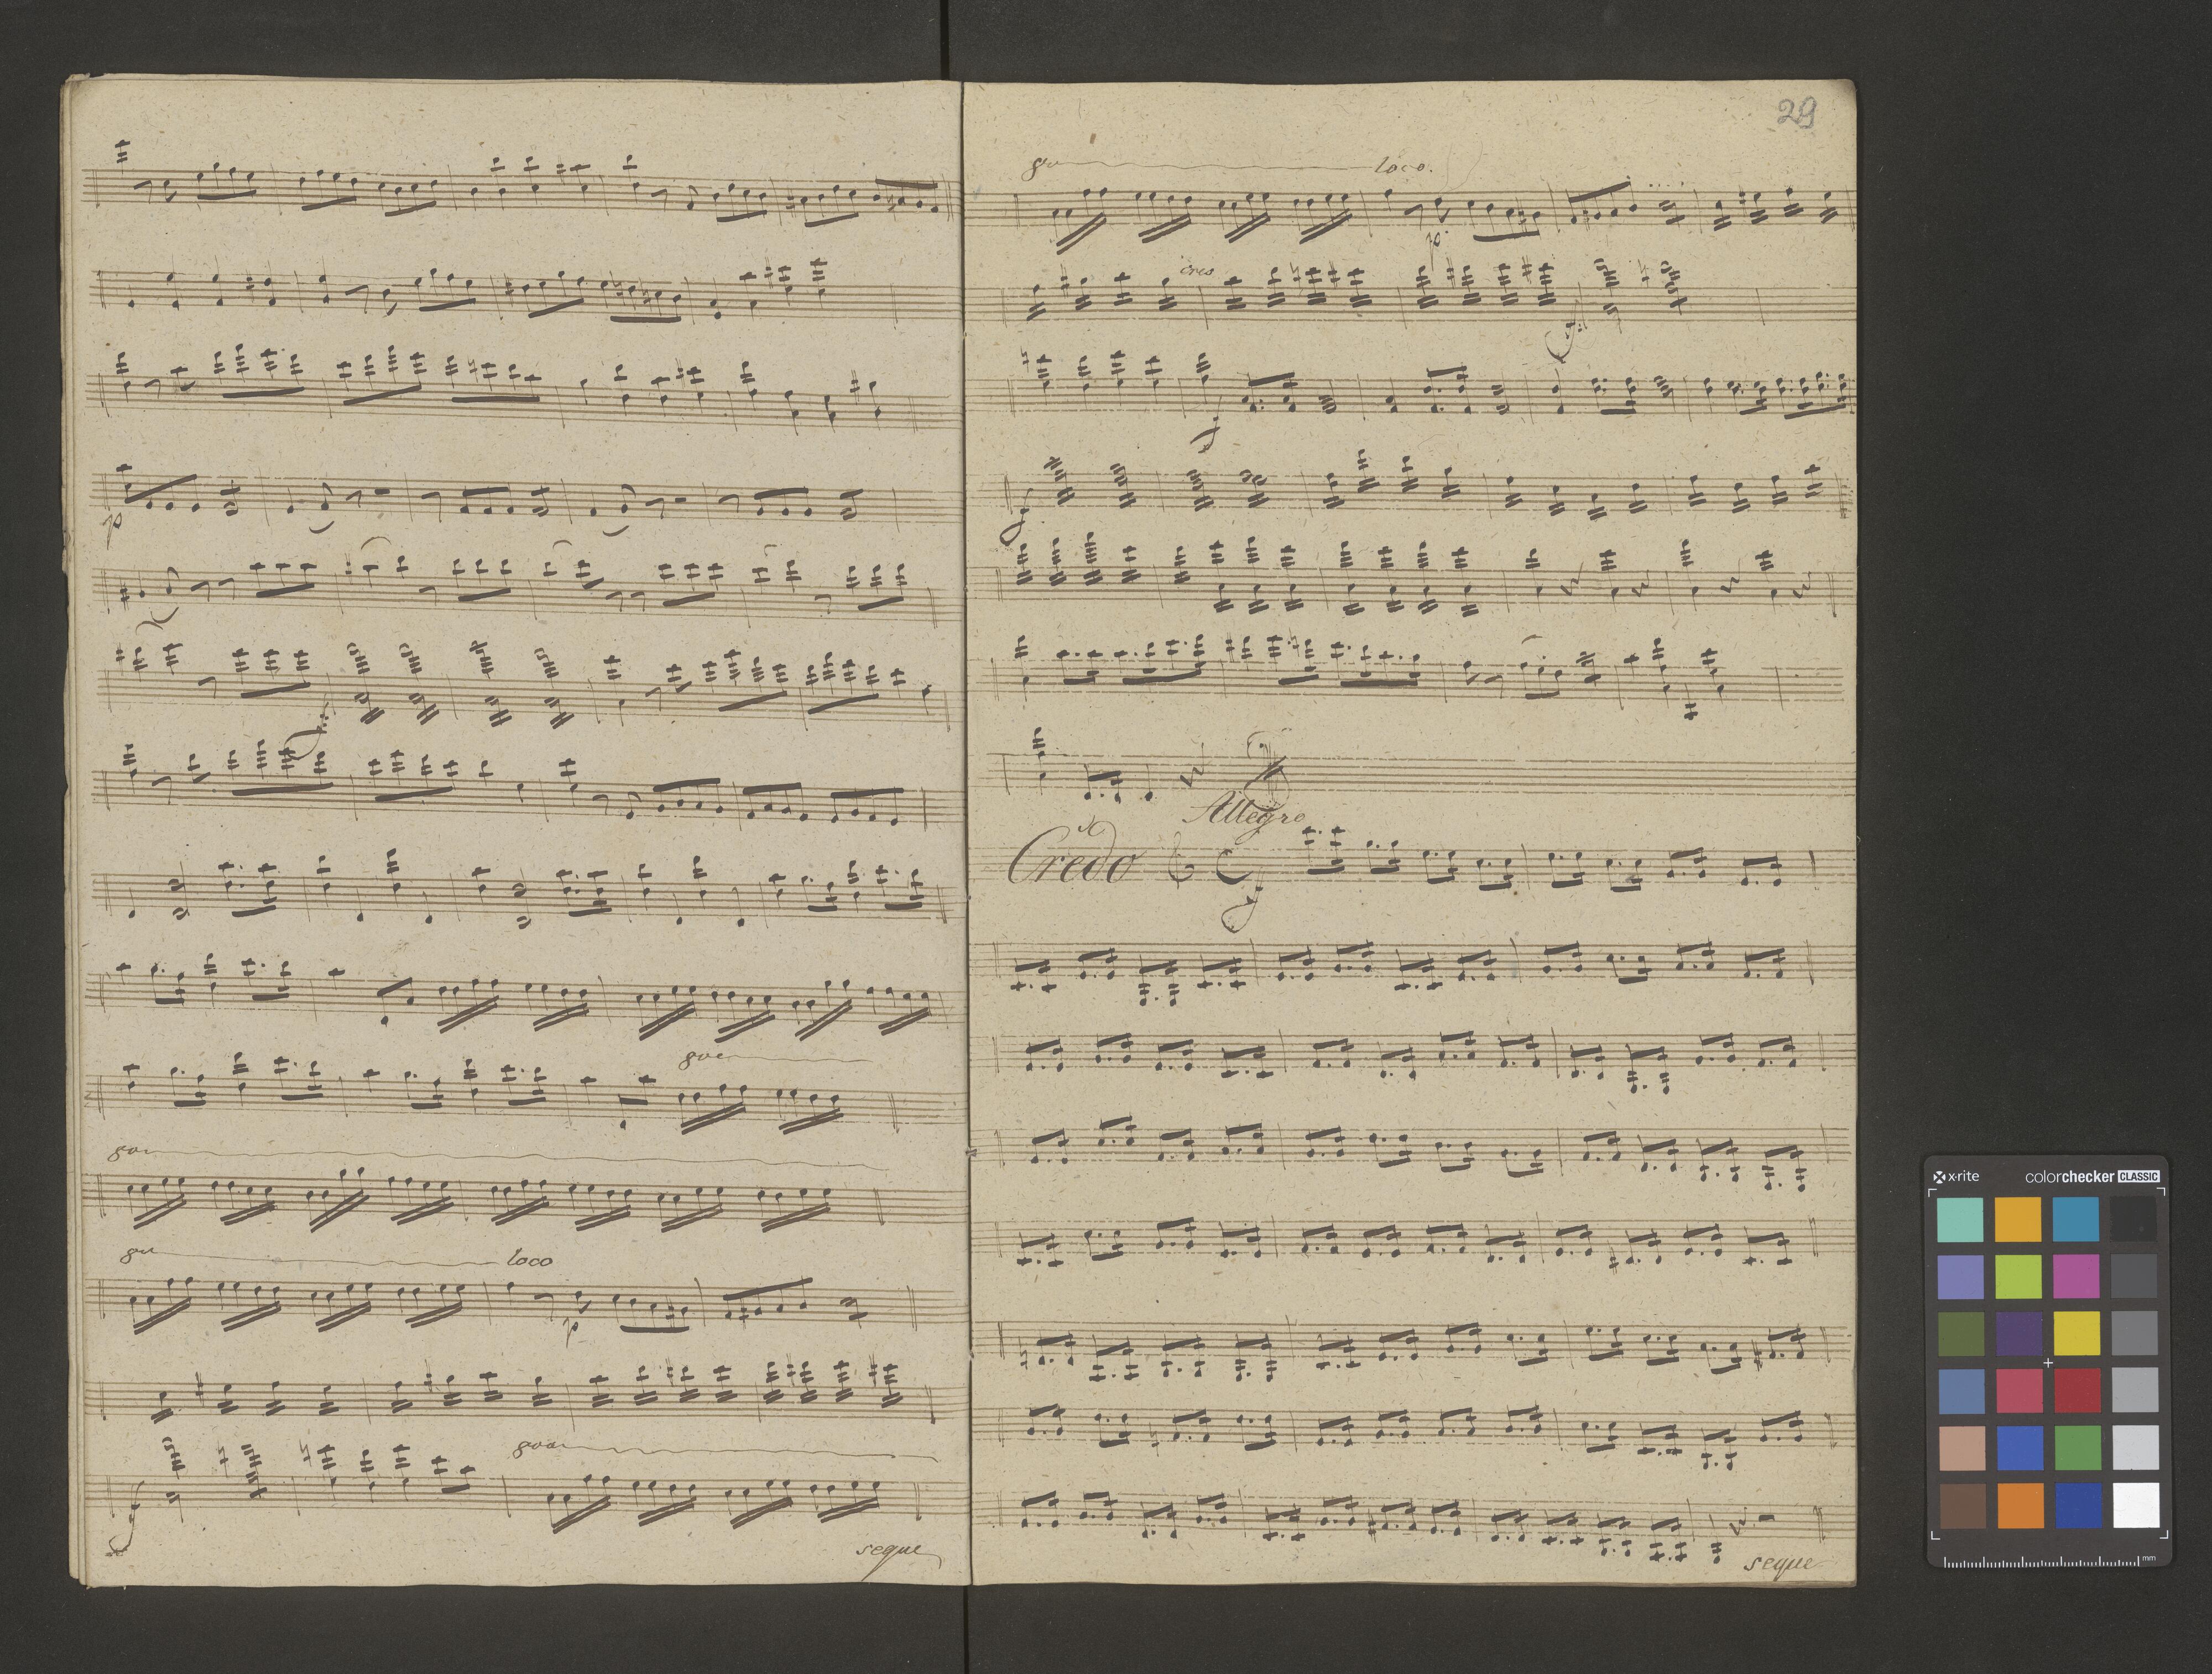 p
f
8va
8va
8va loco
p
8va
f
segue
29
8va loco.
p
cres
f
f
f
Allegro
Credo
f
segue
x-rite colorchecker CLASSIC
mm